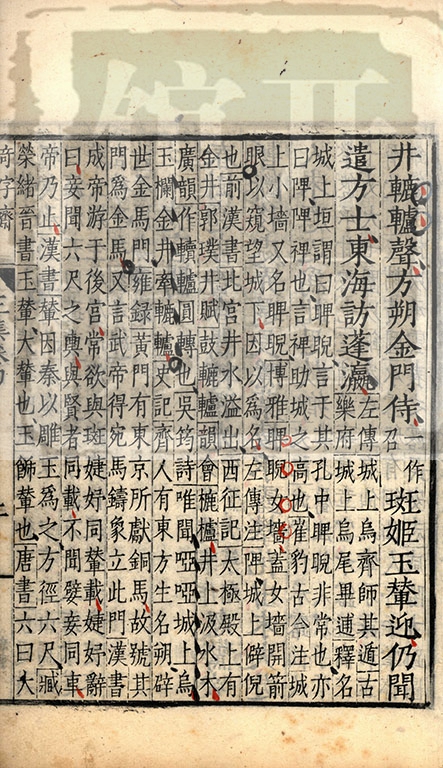 井轆轤聲方朔金門侍一作召班姬玉輦迎仍聞
遣方士東海訪蓬瀛左傳城上烏齊師其遁古
樂府城上烏尾畢逋釋名
城上垣謂曰睥睨言于其孔中睥睨非常也亦
曰陴陴裨也言裨助城之高也崔豹古今注城
上小墻又名睥睨博雅睥睨女墻蓋女墻開箭
眼以窺望城下因以爲名左傳注陴城上僻倪
也前漢書北宮井水溢出西征記太極殿上有
金井郭璞井賦鼓轆轤韻會樚櫨井上汲水木
廣韻作轒轤圓轉也吳筠詩唯聞啞啞城上烏
玉欄金井牽轆轤史記齊人有東方生名朔辟
世金馬門雍錄黃門有東京所獻銅馬故號其
門爲金馬又言武帝得宛馬鑄象立此門漢書
成帝游于後宮常欲與班婕妤同輦載婕妤辭
曰妾聞六尺之輿與賢者同載不聞嬖妾同車
帝乃止漢書玉輦因秦以雕玉爲之方徑六尺臧
榮緒晉書玉輦大輦也玉飾輦也唐書六曰大
奇字齋